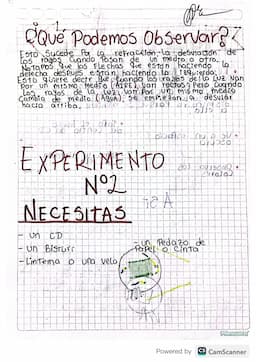 ¿Qué Podemos Observar?
Esto Sucede Por la refracción la desviación de
los rayos cuando pasan de un medio a otro.
Notamos que las flechas que están haciendo la
derecha después están haciendo la izquierda.
Esto quiere decir que cuando los rayos de la luz van
Por un mismo medio (AIRE) van rectos Pero cuando
los rayos de la luz van por un mismo medio
cambia de medio (AGUA), se empiezan a desviar
hacia arriba.
EXPERIMENTO
Nº2
NECESITAS
- un CD
- un Bisturí
- linterna o una vela
un Pedazo de
Papel o cinta
Powered by CS CamScanner